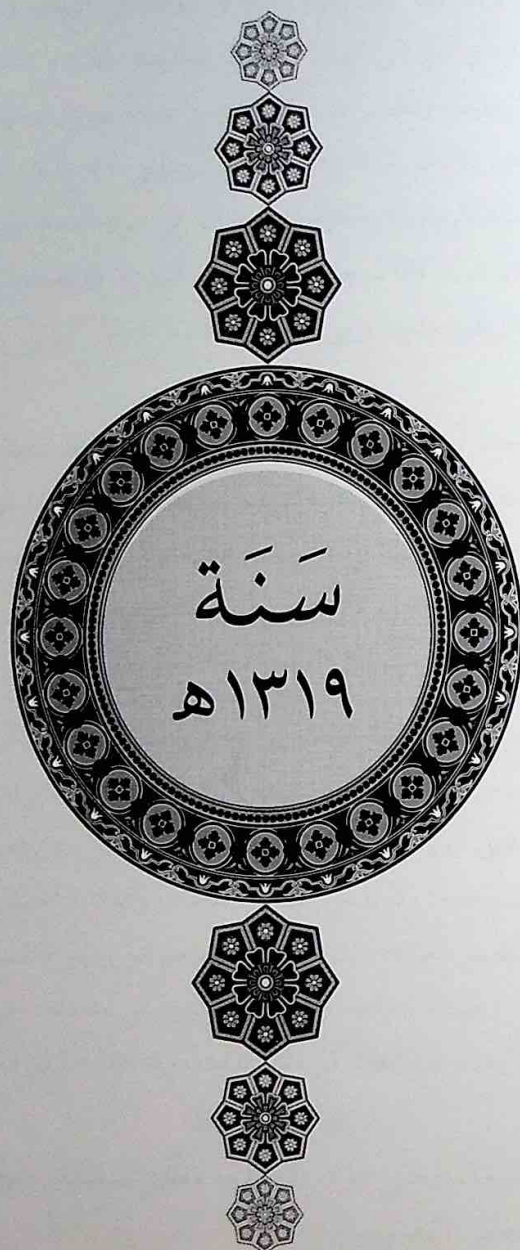 سَنَة
١٣١٩ه